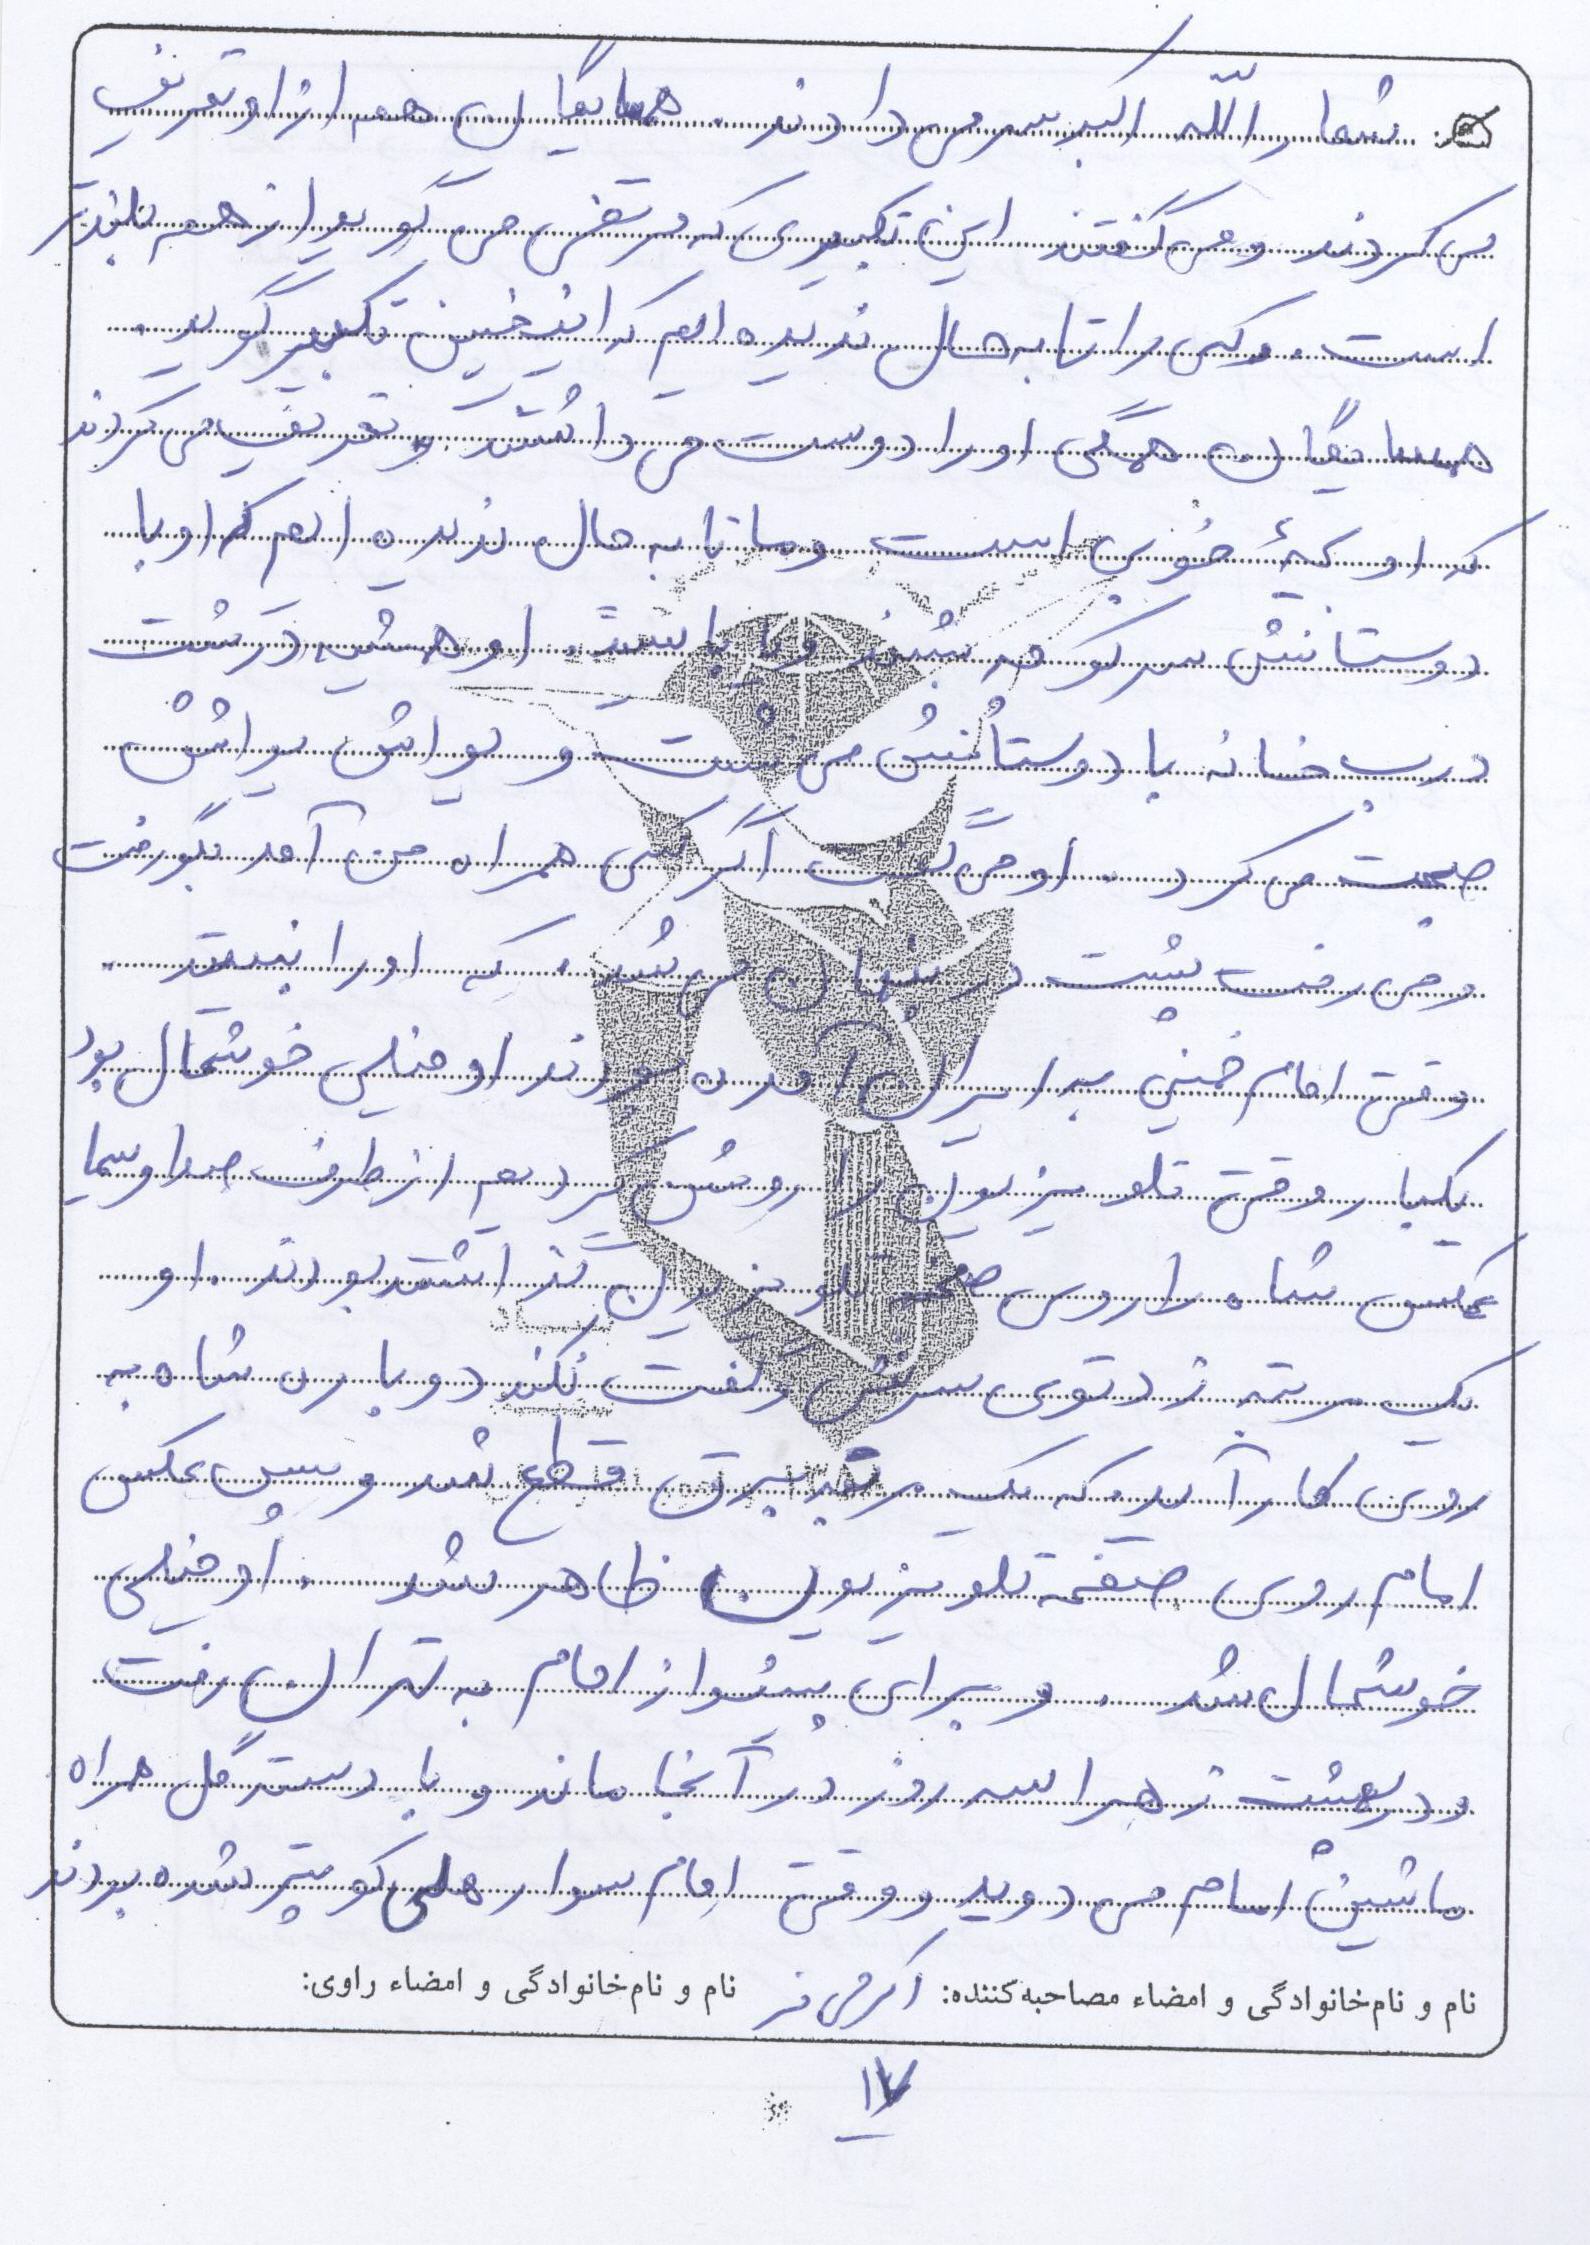 شعار الله اکبر سر می دادند. همسایگان هم از او تعریف
می کردند و می گفتند این تکبیری که مرتضی می گوید از همه بلندتر
است. و کسی را تا به حال ندیده ایم که اینچنین تکبیر گوید.
همسایگان همگی او را دوست می داشتند و تعریف می کردند
که او بچهٔ خوبی است و ما تا به حال ندیده ایم که او با
دوستانش سر کوچه بشیند و یا باشد. او همیشه درشت
درب خانه با دوستانش می نشست و یواش یواش
صحبت می کرد. او می گفت اگر کسی همراه من آمد بگو رفت
و می رفت پشت در پنهان می شد. که او را نبینند.
وقتی امام خمینی به ایران آمده بودند او خیلی خوشحال بود
یکبار وقتی تلویزیون را روشن کردیم از طرف صدا و سیما
عکس شاه را روی صفحه تلویزیون گذاشته بودند. او
یک مرتبه زد توی سرش و گفت نکند دوباره شاه به
روی کار آید. که یک مرتبه برق قطع شد و سپس عکس
امام روی صفحه تلویزیون ظاهر شد. او خیلی
خوشحال شد. و برای پیشواز امام به تهران رفت
و در بهشت زهرا سه روز در آنجا ماند و با دسته گل همراه
ماشین امام می دوید و وقتی امام سوار هلی کوپتر شده بودند
نام و نام‌خانوادگی و امضاء مصاحبه‌کننده: اکرمی فر نام و نام‌خانوادگی و امضاء راوی:
۱۷